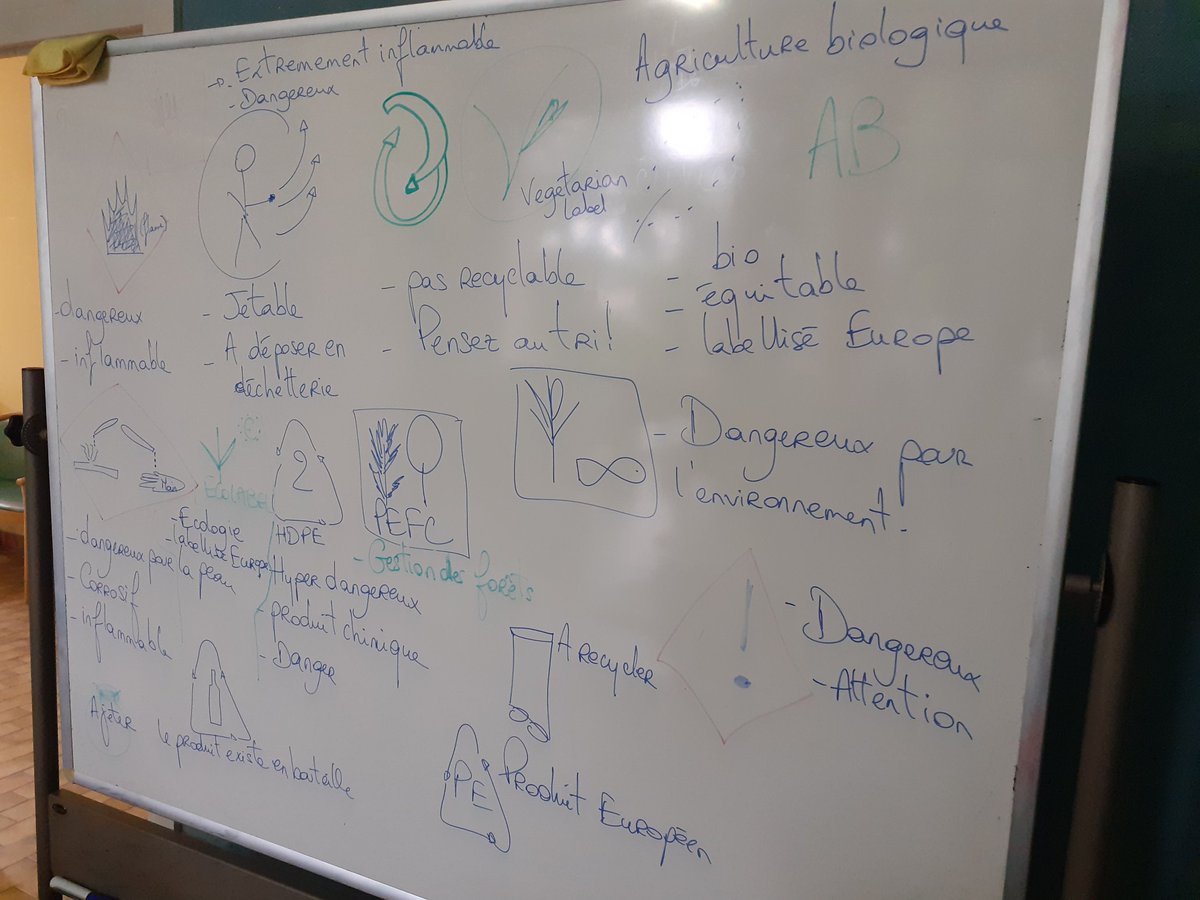 → Extremement inflammable
- Dangereux
Agriculture biologique
AB
(flamme)
Vegetarian
label
- dangereux
- inflammable
- Jetable
- A déposer en
déchetterie
- pas recyclable
- Pensez au tri!
- bio
- équitable
- labellisé Europe
Main
ECOLABEL
- Ecologie
- labellisé Europe
2
HDPE
PEFC
- Gestion des forêts
- Dangereux pour
l'environnement.
- dangereux pour la peau
- Corrosif
- inflammable
- Hyper dangereux
- produit chimique
- Danger
A recycler
!
- Dangereux
- Attention
A jeter
le produit existe en bouteille
PE
Produit Européen